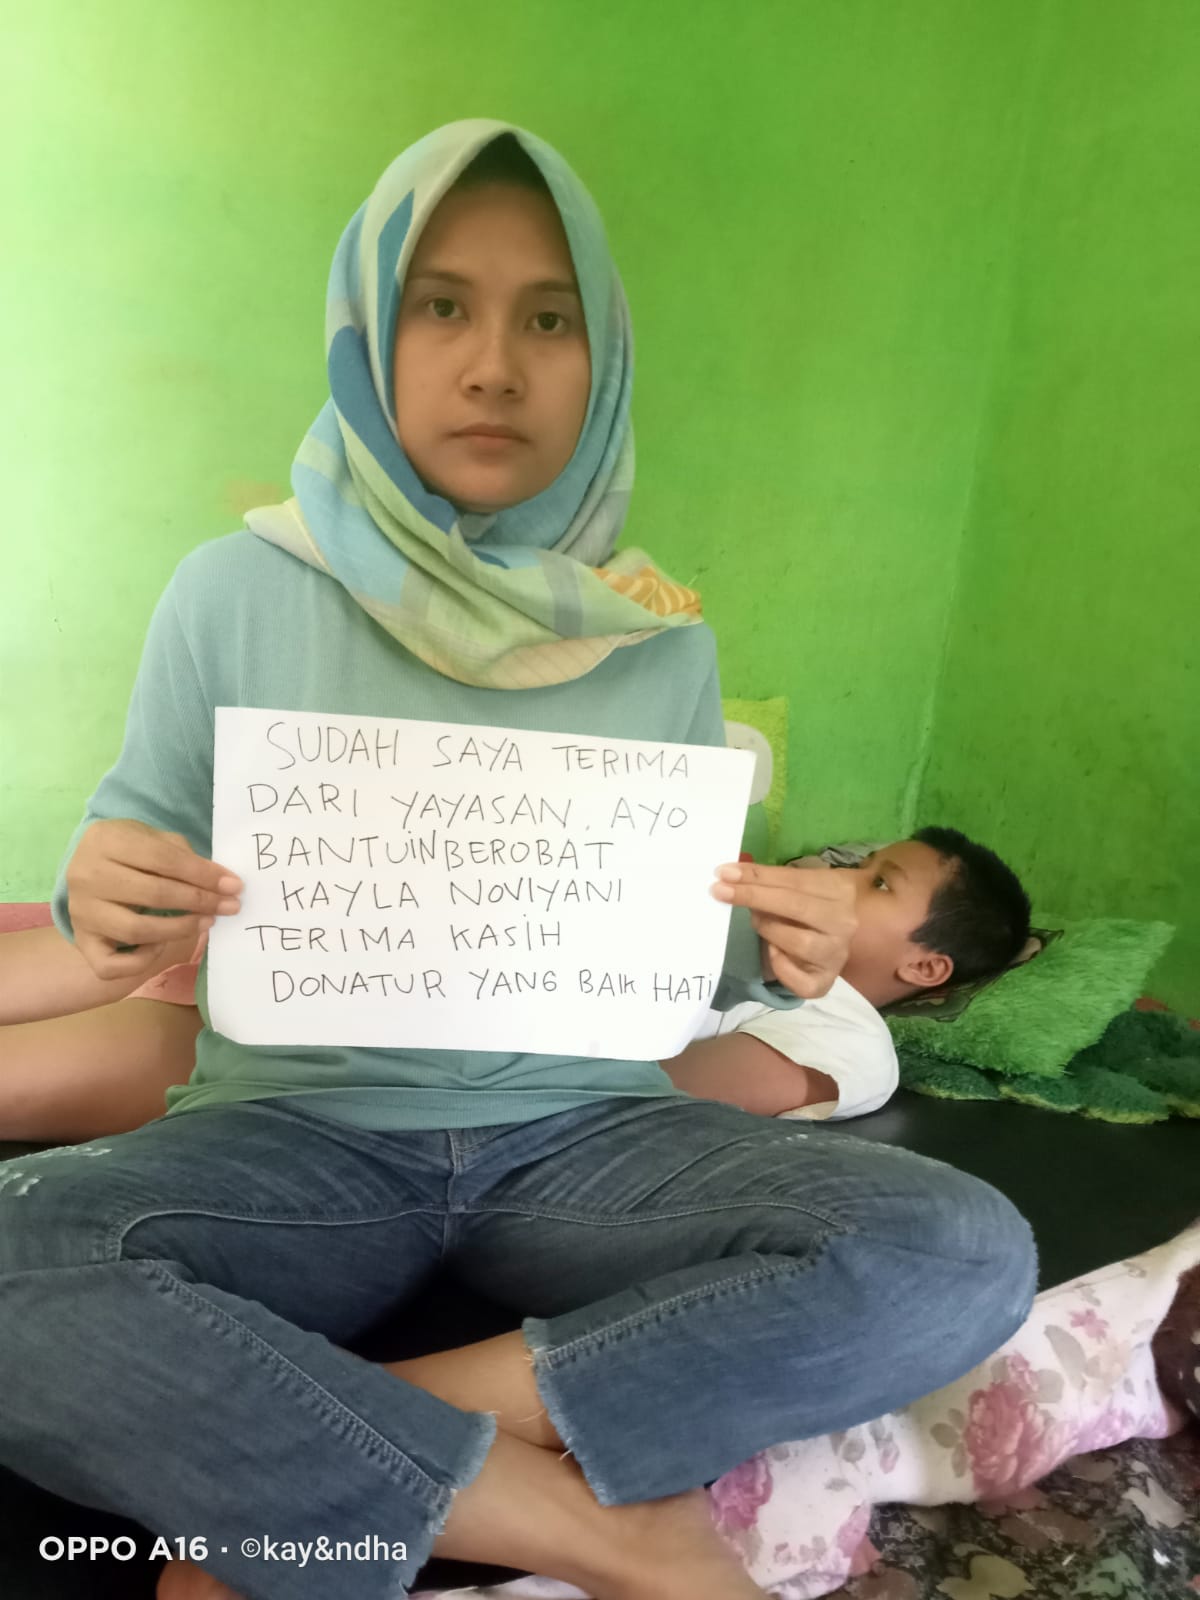 SUDAH SAYA TERIMA
DARI YAYASAN. AYO
BANTUiN BEROBAT
KAYLA NOVIYANI
TERIMA KASiH
DONATUR YANG BAIK HATi
OPPO A16 · ©kay&ndha